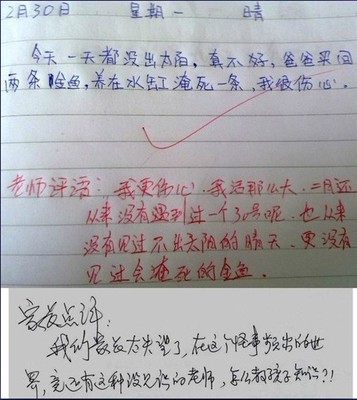 2月30日 星期一 晴
今天一天都没出太阳,真不好,爸爸买回
两条金鱼,养在水缸淹死一条,我很伤心.
老师评语:我更伤心.我活那么大,二月还
从来没有遇到过一个30号呢.也从来
没有见过不出太阳的晴天.更没有
见过会淹死的金鱼.
家长点评:
我的家长太失望了,在这个怪事频出的世
界,竟还有这种没见识的老师,怎么教孩子知识?!